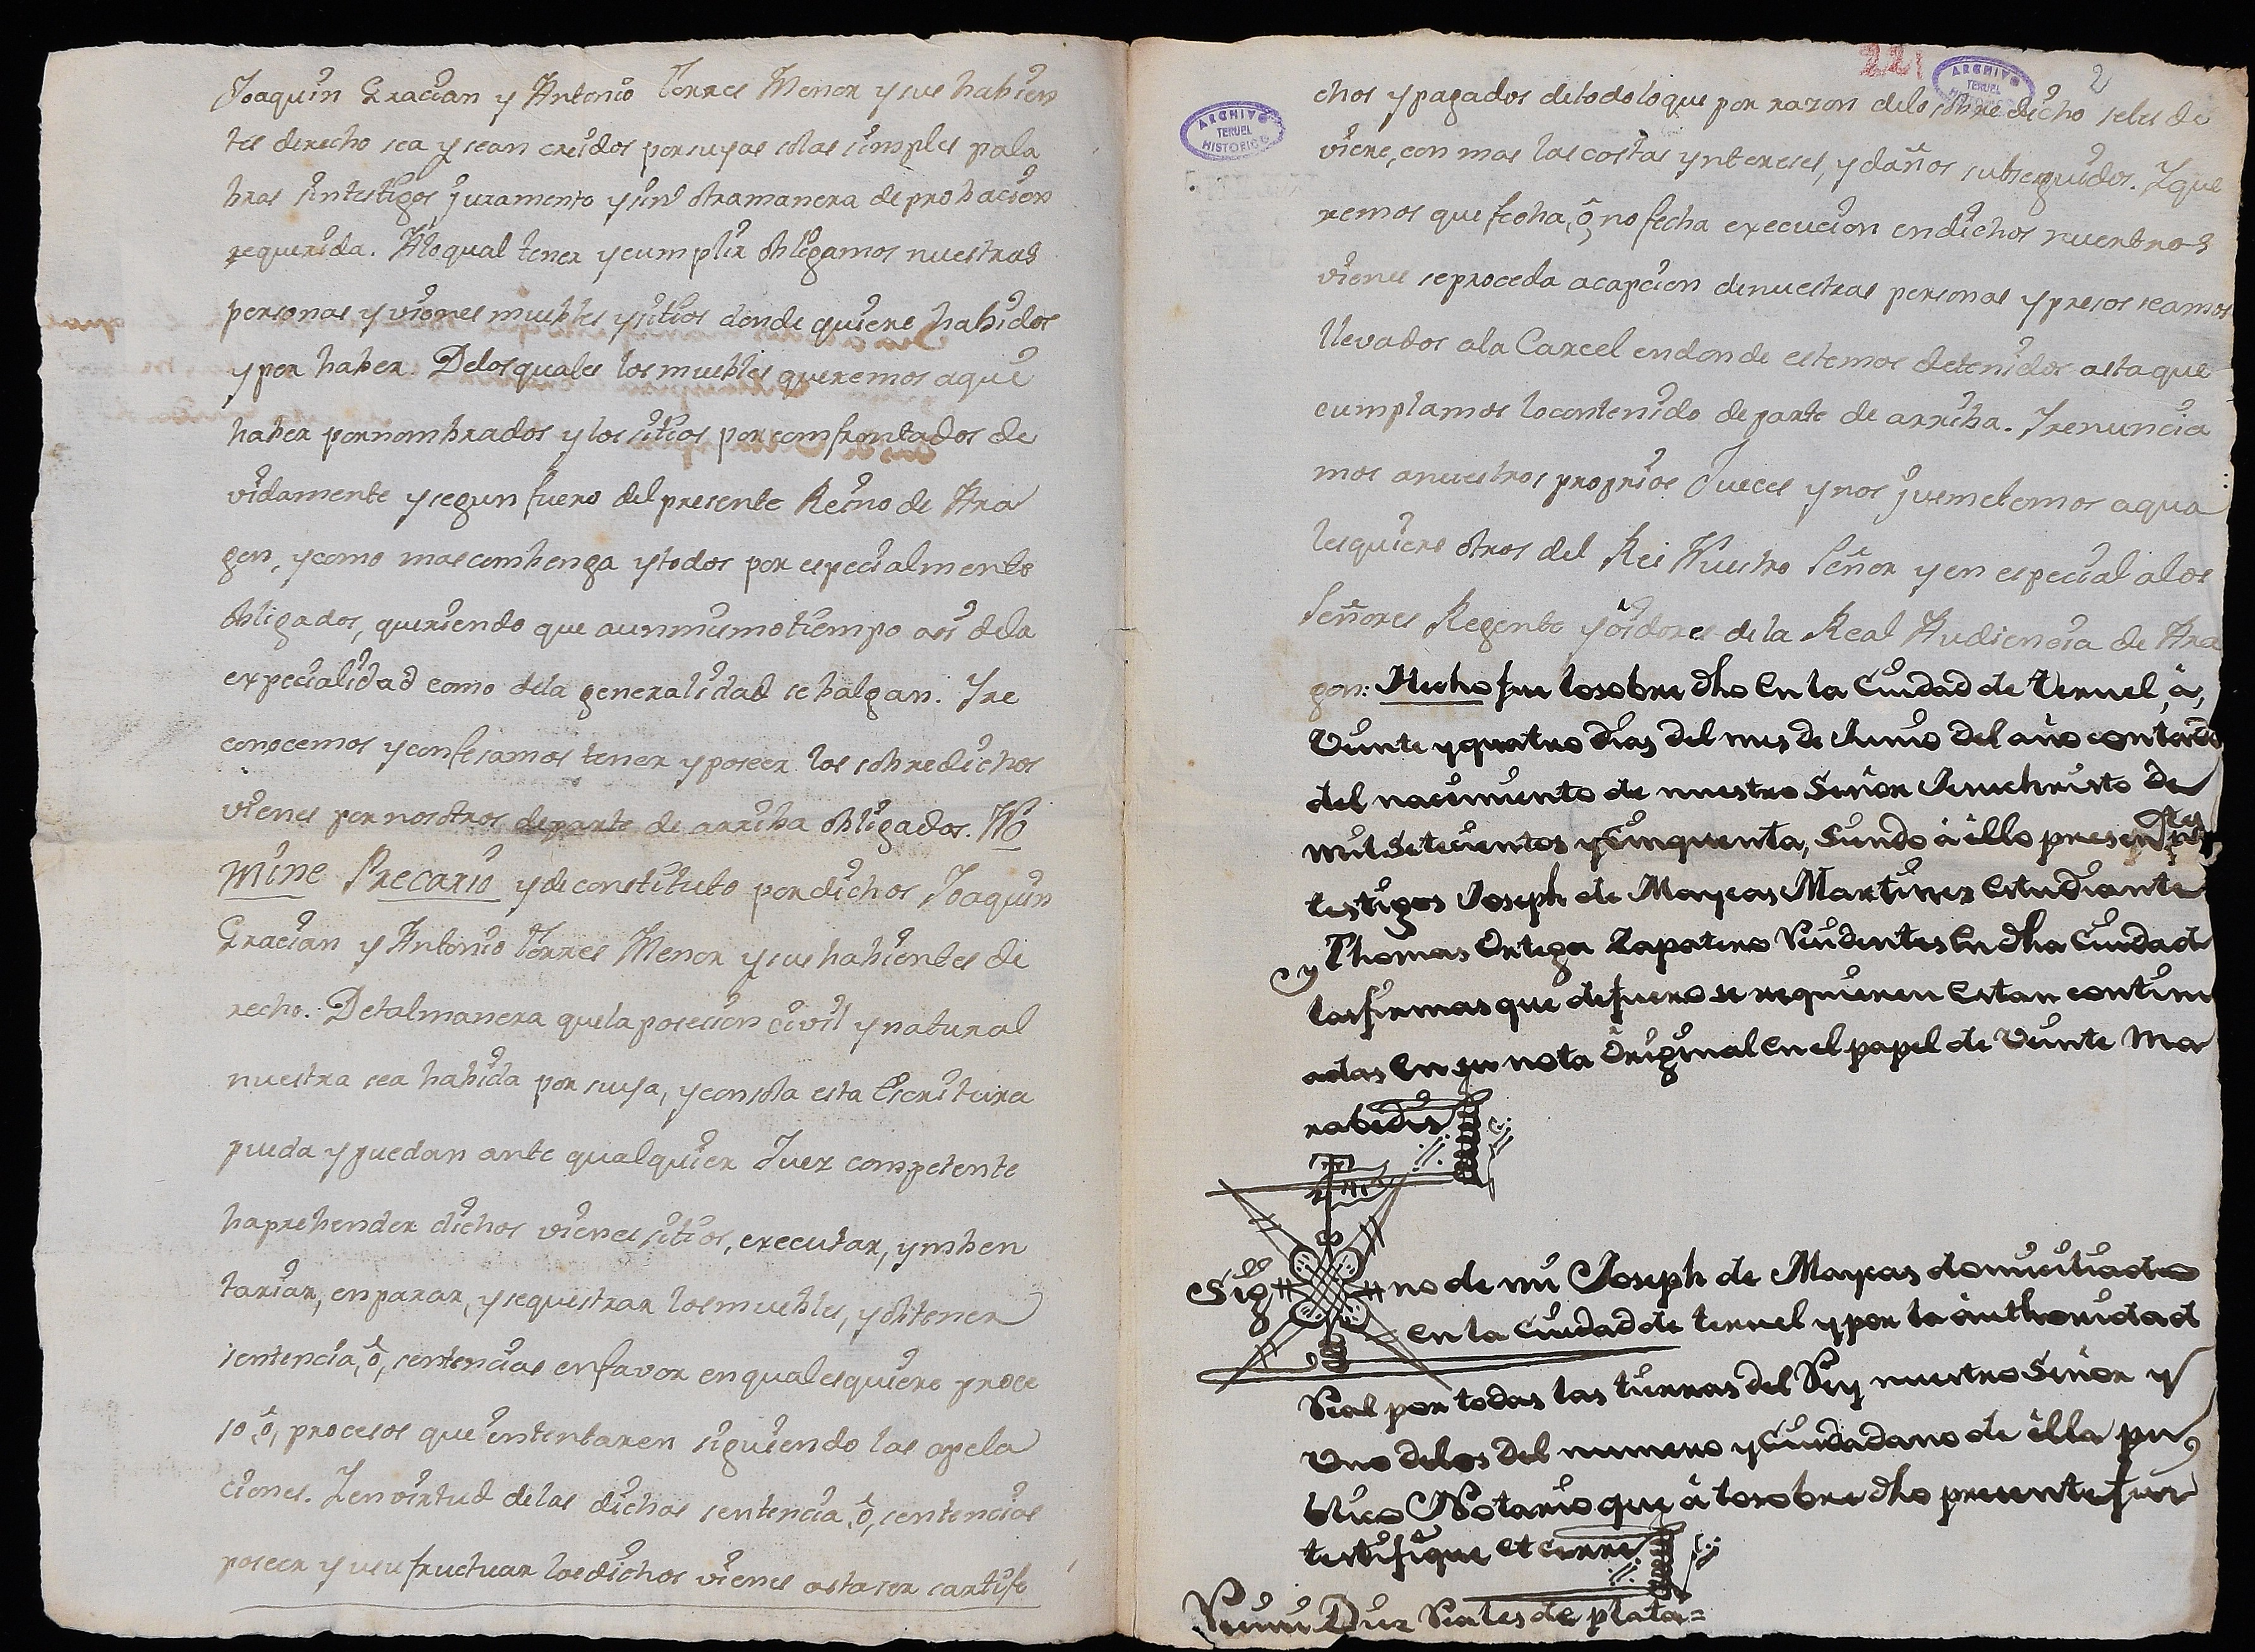 Joaquin Gracian y Antonio Torres Menor y sus habien
tes derecho sea y sean creidos por suyas solas simples pala
bras sin testigos, juramento y sin otra manera de probacion
requerida. A lo qual tener y cumplir obligamos nuestras
personas y vienes muebles y sitios donde quiere habidos
y por haber. Delos quales los muebles queremos aqui
haber por nombrados y los sitios por comfrontados de
vidamente y segun fuero del presente Reino de Ara
gon, y como mas combenga y todos por especialmente
obligados, queriendo que a un mismo tiempo asi dela
expecialidad como dela generalidad se balgan. Y re
conocemos y confesamos tener y poseer los sobredichos
vienes por nosotros de parte de arriba obligados. No
mine Precario y de constituto por dichos Joaquin
Gracian y Antonio Torres Menor y sus habientes de
recho. De tal manera que la posesion civil y natural
nuestra sea habida por suya, y con sola esta Escritura
pueda y puedan ante qualquier Juez competente
haprehender dichos vienes sitios, executar, ymben
tariar, enparar, y sequestrar los muebles, y obtener
sentencia, ô, sentencias en favor en qualesquiere proce
so, ô, procesos que intentaren siguiendo las apela
ciones. Y en virtud de las dichas sentencia, ô, sentencias
poseer y usufructuar los dichos vienes asta ser satisfe
221
2
ARCHIVO
TERUEL
HISTORICO
ARCHIVO
TERUEL
HISTORICO
chos y pagados de todo lo que por razon delo sobredicho seles de
viere, con mas las costas yntereses, y daños subseguidos. Y que
remos que fecha, ô, no fecha execucion en dichos nuestros
vienes se proceda a capcion de nuestras personas y presos seamos
llevados a la Carcel en donde estemos detenidos asta que
cumplamos lo contenido de parte de arriba. Y renuncia
mos a nuestros proprios Jueces y nos jusmetemos a qua
lesquiere otros del Rei Nuestro Señor y en especial a los
Señores Regente y oidores de la Real Audiencia de Ara
gon: Hecho fue lo sobre dho en la Ciudad de Teruel, â,
Veinte y quatro dias del mes de Junio del año contado
del nacimiento de nuestro Señor Jesuchristo de
mil Setecientos y Cinquenta, Siendo â êllo presentes
testigos Joseph de Maycas Martinez Estudiante
y Thomas Ortega Zapatero Residentes en dha Ciudad
las firmas que de fuero se requieren estan continu
adas en su nota Original en el papel de Veinte Ma
rabedis
Sig no de mi Joseph de Maycas domiciliado
en la Ciudad de teruel y por la authoridad
Real por todas las tierras del Rey nuestro Señor y
Uno delos del numero y Ciudadano de êlla pu
blico Notario que â lo sobre dho presente fui
testifique et cerre
Reciui Diez Reales de plata=